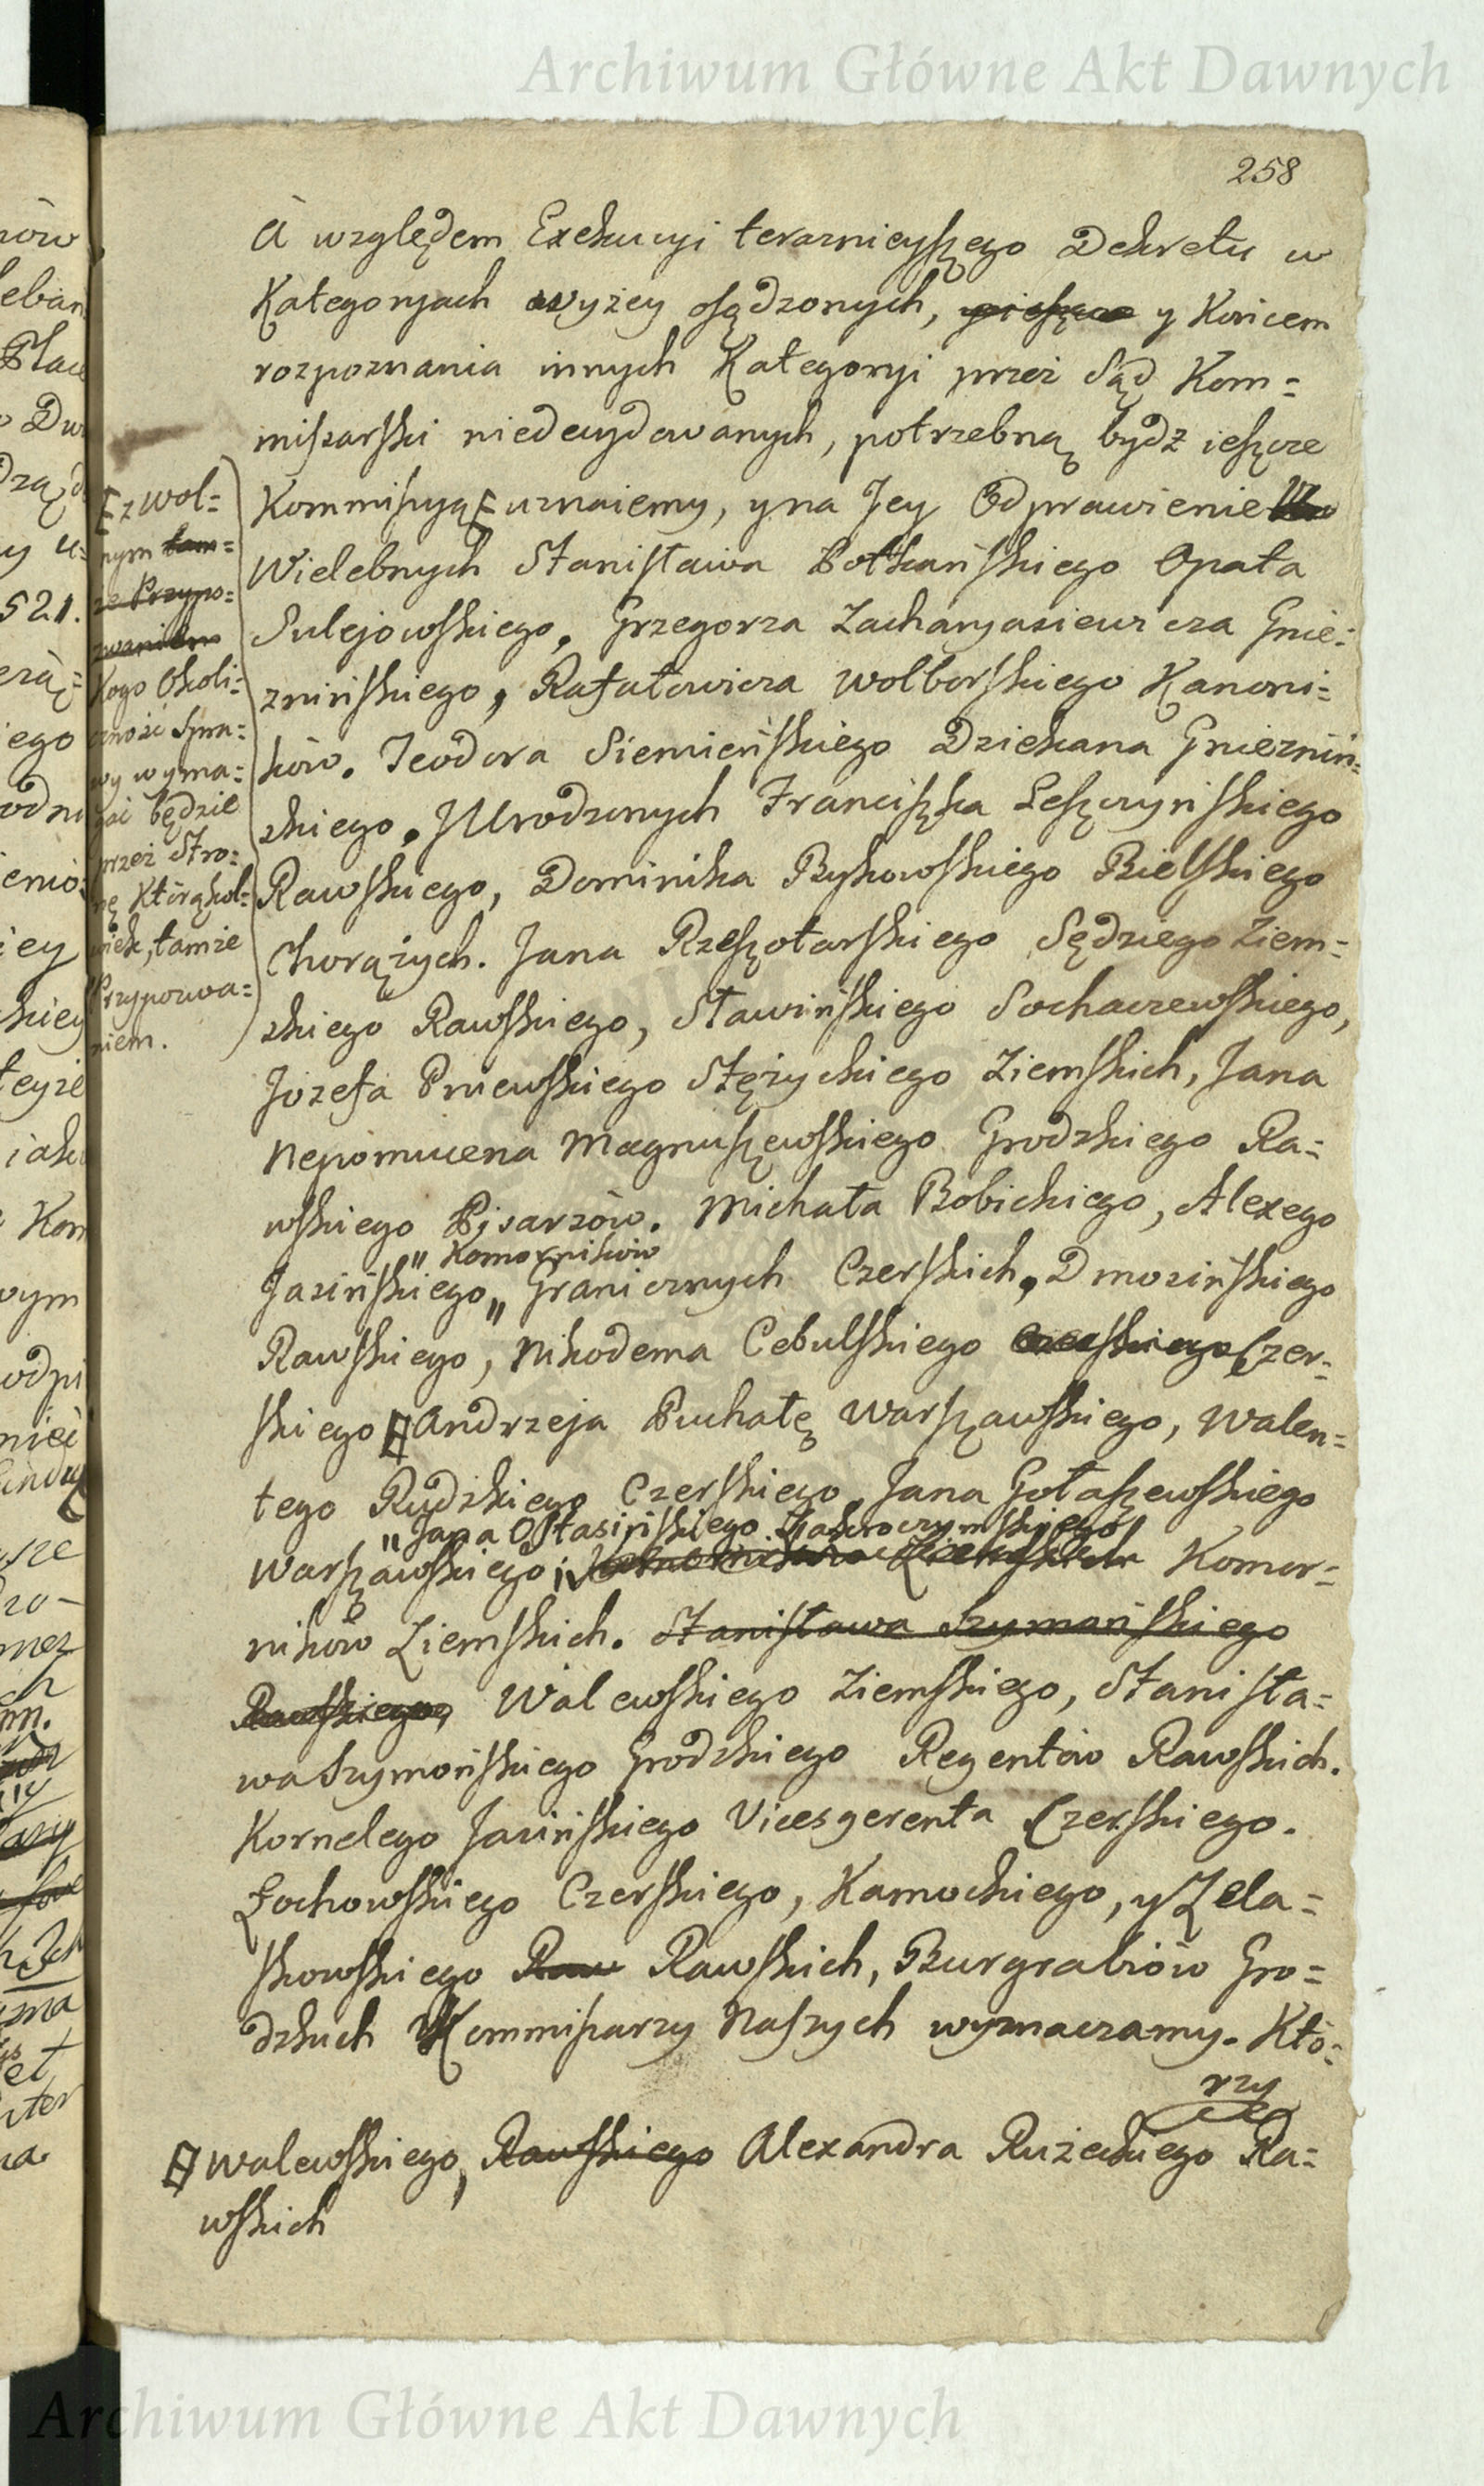 Archiwum Główne Akt Dawnych
258
A względem Exekucyi teraznieyszego Dekretu w
Kategoryach wyżey osądzonych, y Końcem
rozpoznania innych Kategoryi przez Sąd Kom=
missarski niedecydowanych, potrzebną bydź ieszcze
Kommissyą uznaiemy, y na Jey Odprawienie
Wielebnych Stanisława Bołkańskiego Opata
Sulejowskiego, Grzegorza Zacharyasiewicza Gnie=
znińskiego, Rafałowicza Wolborskiego Kanoni=
ków. Teodora Siemieńskiego Dziekana Gnieznin=
skiego. Urodzonych Franciszka Leszczyńskiego
Rawskiego, Dominika Bykowskiego Bielskiego
Chorążych. Jana Rzeszotarskiego Sędziego Ziem=
skiego Rawskiego, Sławińskiego Sochaczewskiego,
Józefa Pniewskiego Stężyckiego Ziemskich, Jana
Nepomucena Magnuszewskiego Grodzkiego Ra=
wskiego Pisarzów. Michała Bobickiego, Alexego
" Komorników
Jasińskiego " Granicznych Czerskich, Dmosińskiego
Rawskiego, Nikodema Cebulskiego Czerskiego Czer=
skiego Andrzeja Puchałę Warszawskiego, Walen=
tego Rudzkiego Czerskiego, Jana Gołaszewskiego
" Jana Ostasińskiego Zakroczymskiego
Warszawskiego, Komor=
ników Ziemskich. Stanisława Szymańskiego
Rawskiego, Walewskiego Ziemskiego, Stanisła=
wa Szymońskiego Grodzkiego Regentów Rawskich.
Kornelego Jasińskiego Vicesgerenta Czerskiego.
Łochowskiego Czerskiego, Kamockiego, y Zela=
skowskiego Raw Rawskich, Burgrabiów Gro=
dzkich Kommissarzy Naszych wyznaczamy. Któ=
rzy
Walewskiego, Rawskiego Alexandra Rużeckiego Ra=
wskich
z wol=
nym tam=
że Przypo=
zwaniem
Kogo Okoli=
czność Spra=
wy wyma=
gać będzie
przez Stro=
nę Którąkol=
wiek, tamże
Przypozwa=
niem.
Archiwum Główne Akt Dawnych